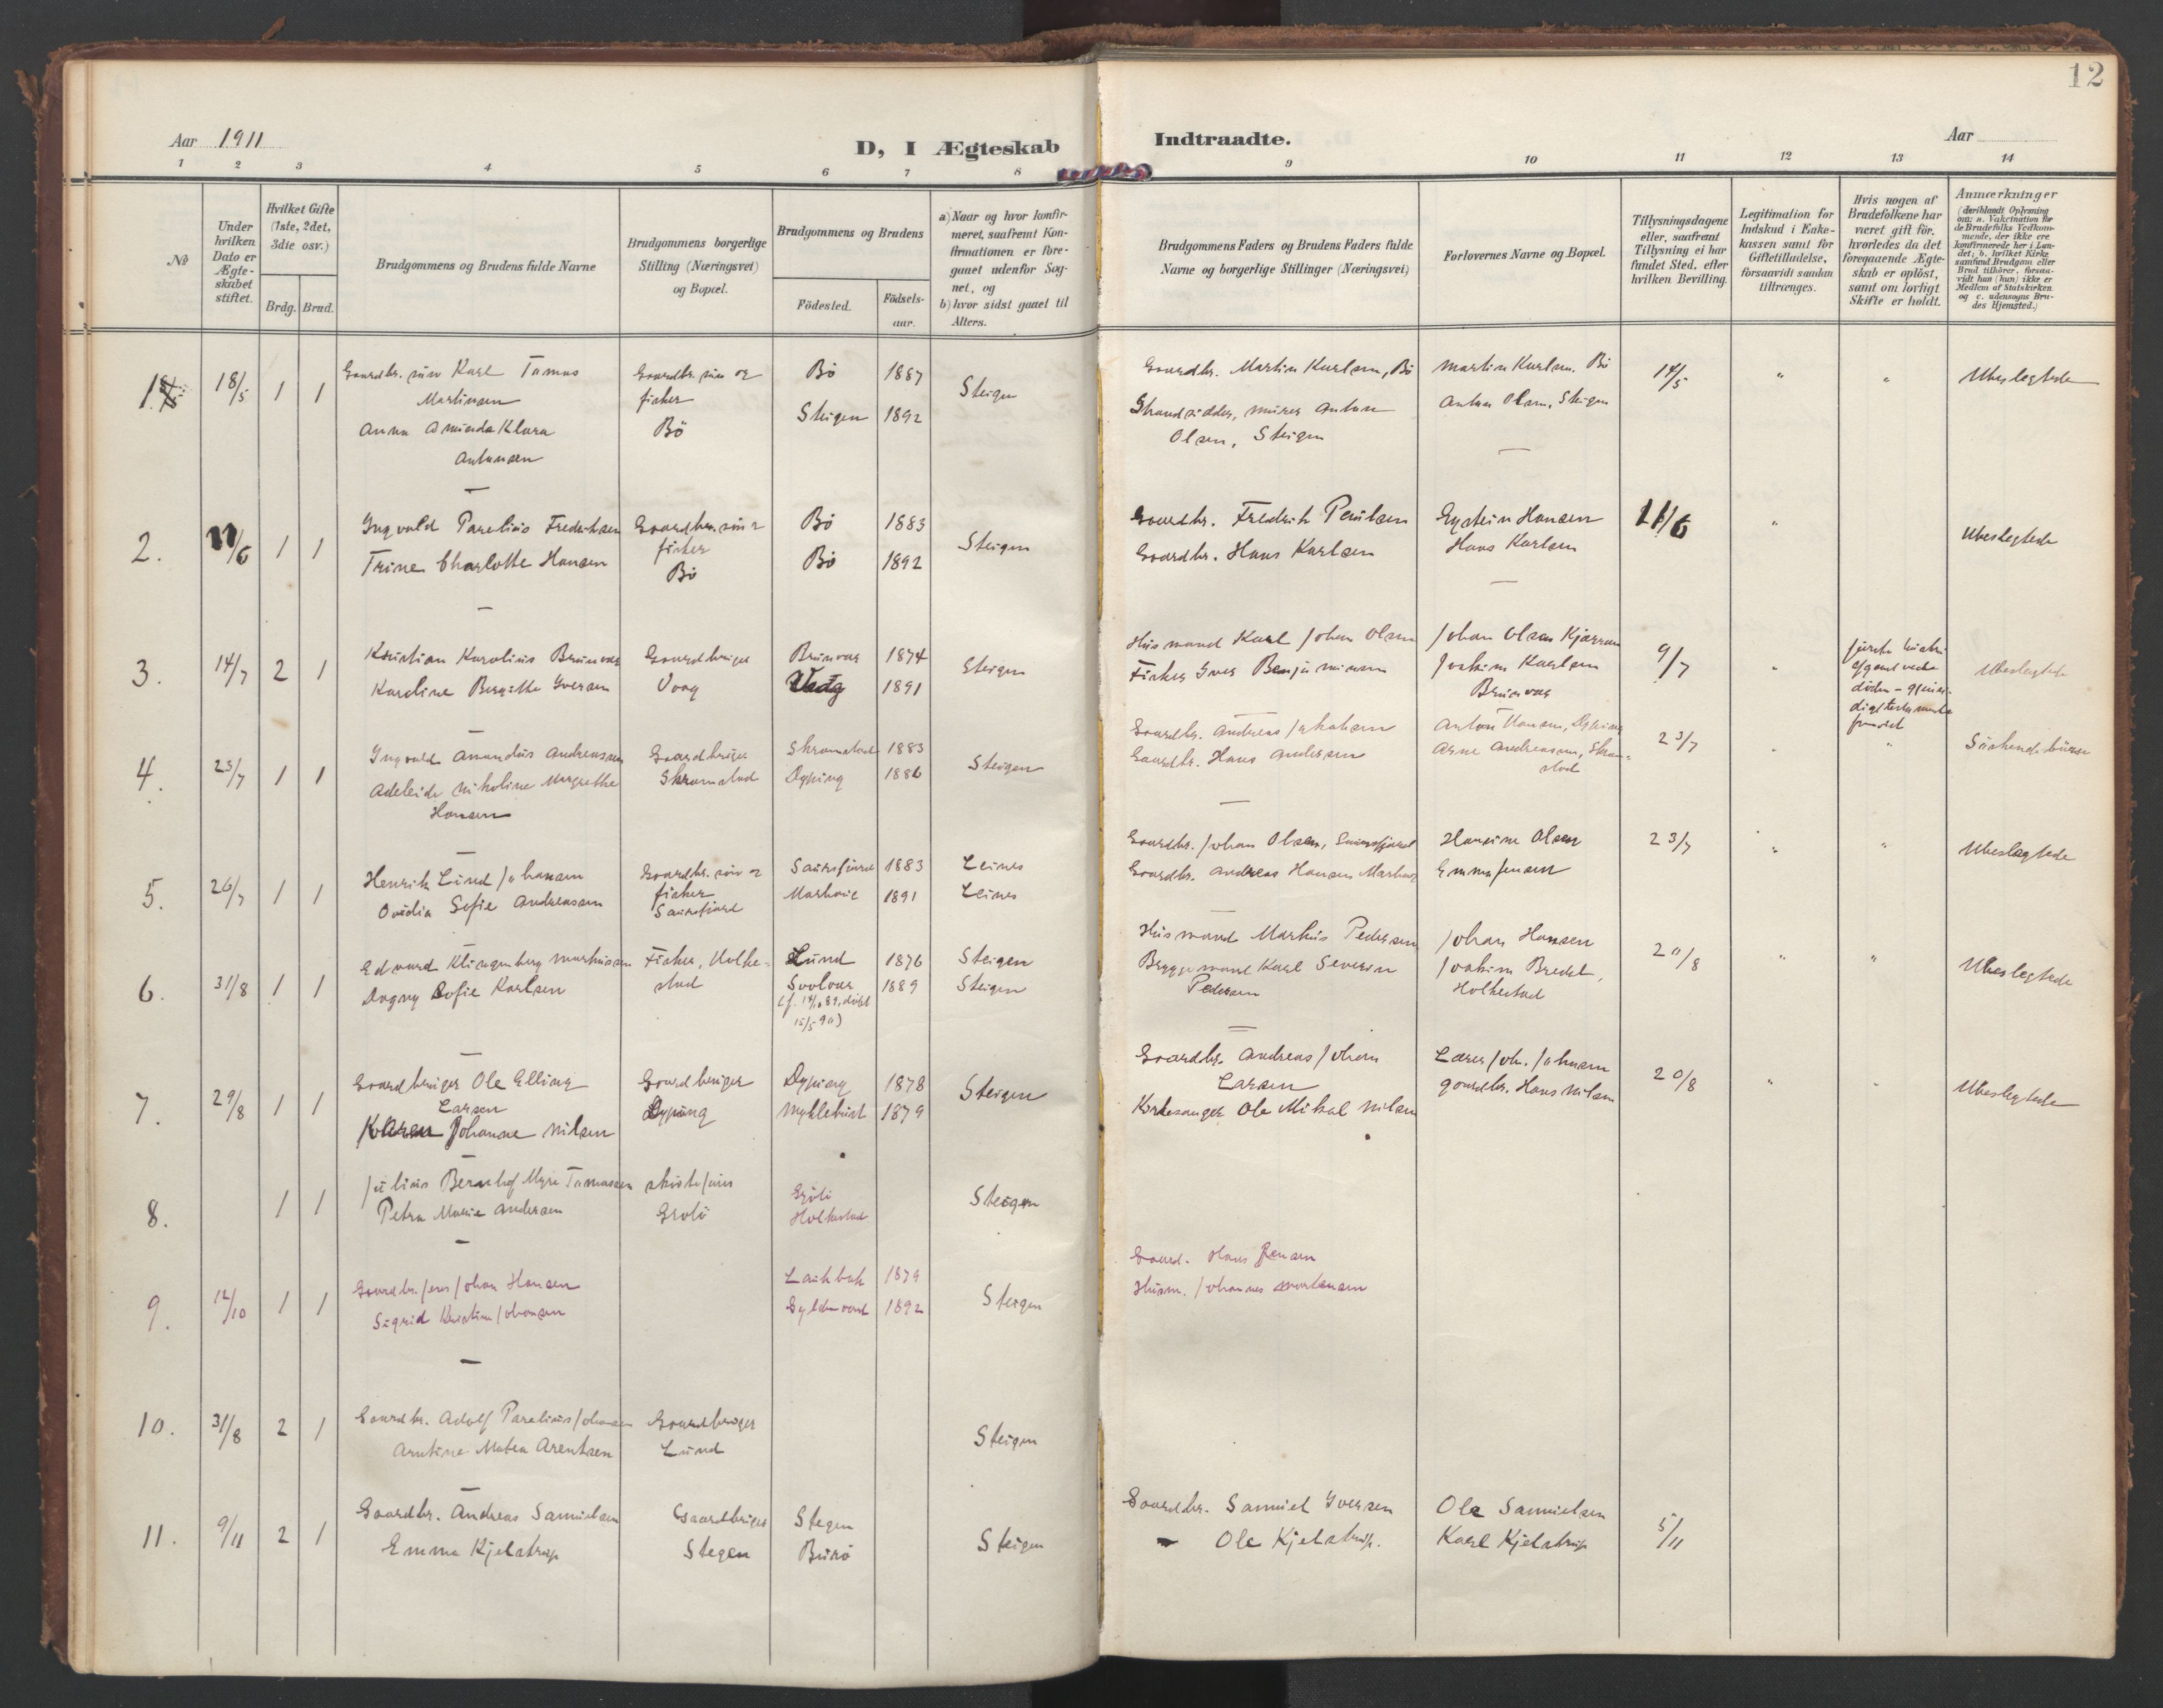 12
Aar 1911
D, I Ægteskab Indtraadte.
Aar
1 2 3 4 5 6 7 8 9 10 11 12 13 14
№
Under hvilken Dato er Ægte-skabet stiftet.
Hvilket Gifte (1ste, 2det, 3die osv.)
Brdg. Brud.
Brudgommens og Brudens fulde Navne
Brudgommens borgerlige Stilling (Næringsvei) og Bopæl.
Brudgommens og Brudens
Fødested.
Fødsels-aar.
a) Naar og hvor konfir-meret, saafremt Kon-firmationen er fore-gaaet udenfor Sog-net, og
b) hvor sidst gaaet til Alters.
Brudgommens Faders og Brudens Faders fulde Navne og borgerlige Stillinger (Næringsvei)
Forlovernes Navne og Bopæl.
Tillysningsdagene eller, saafremt Tillysning ei har fundet Sted, efter hvilken Bevilling.
Legitimation for Indskud i Enke-kassen samt for Giftetilladelse, forsaavidt saadan tiltrænges.
Hvis nogen af Brudefolkene har været gift før, hvorledes da det foregaaende Ægte-skab er opløst, samt om lovligt Skifte er holdt.
Anmærkninger
(deriblandt Oplysning om: a. Vakcination for de Brudefolks Vedkom-mende, der ikke ere konfirmerede her i Lan-det; b. hvilket Kirke-samfund Brudgom eller Brud tilhører, forsaa-vidt han (hun) ikke er Medlem af Statskirken og c. udensogns Bru-des Hjemsted.)
1. 18/5 1 1 Gaardbr. søn Karl Tomas Martinsen
Anna Aminda Klara Antonsen
Gaardbr. søn og fisker Bö
Bö 1887
Steigen 1892
Steigen
Gaardbr. Martin Karlsen, Bö
Strandsidder, murer Anton Olsen, Steigen
Martin Karlsen. Bö
Anton Olsen, Steigen
14/5 " " Ubeslegtede
2. 11/6 1 1 Ingvald Parelius Fredriksen
Trine Charlotte Hansen
Gaardbr. søn & fisker Bö
Bö 1883
Bö 1892
Steigen
Gaardbr. Fredrik Paulsen
Gaardbr. Hans Karlsen
Eystein Hansen
Hans Karlsen
11/6 " Ubeslegtede
3. 14/7 2 1 Kristian Karolius Brunvær
Karoline Bergitte Iversen
Gaardbruger Vaag
Brunvær 1874
Vaag 1891
Steigen
Husmand Karl Johan Olsen
Fisker Iver Benjaminsen
Johan Olsen Kjærran
Joakim Karlsen Brunvær
9/7 "
Ubeslegtede
4. 23/7 1 1 Ingvald Amandus Andreassen
Adeleide Nikoline Margrethe Hansen
Gaardbruger Skramstad
Skramstad 1883
Dyping 1886
Steigen
Gaardbr. Andreas Jakobsen
Gaardbr. Hans Andersen
Anton Hansen, Dyping
Arne Andreassen, Skram-stad
23/7 " " Söskendebörn
5. 26/7 1 1 Henrik Lund Johansen
Ovidia Sofie Andreassen
Gaardbr. søn & fisker Saursfjord
Saursfjord 1883 Leines
Markoie 1891 Leines
Gaardbr. Johan Olsen, Saursfjord
Gaardbr. Andreas Hansen
Hansine Olsen
Emma Jensen
23/7 " " Ubeslegtede
6. 31/8 1 1 Edvard Klingenberg Markussen
Dagny Sofie Karlsen
Fisker, Holke-stad
Lund 1876 Steigen
Svolvær 1889 Steigen
(f. 14/10 89, döbt 15/5 90)
Husmand Markus Pedersen
Bryggemand Karl Severin Pedersen
Johan Hansen
Joakim Bredel, Holkestad
20/8 " " Ubeslegtede
7. 29/8 1 1 Gaardbruger Ole Elling Larsen
Karen Johanne Nilsen
Gaardbruger Dyping
Dyping 1878
Myklebust 1879
Steigen
Gaardbr. Andreas Johan Larsen
Kirkesanger Ole Mikal Nilsen
Lærer Joh. Johnsen
gaardbr. Hans Nilsen
20/8 " " Ubeslegtede
8. 1 1 Julius Bernhof Myre Tomassen
Petra Marie Andersen
Grotö
Grötö
Holkestad
Steigen
9. 12/10 1 1 Gaardbr. Jens Johan Hansen
Sigrid Kristine Johansen
Laskbak 1879
Gyldenvand 1892
Steigen
Gaard. Hans Jensen
Husm. Johannes Mortensen
10. 31/8 2 1 Gaardbr. Adolf Parelius Johansen
Arntine Matea Arentsen
Gaardbruger Lund
Steigen
11. 9/11 2 1 Gaardbr. Andreas Samuelsen
Emma Kjelstrup
Gaardbruger Stegen
Stegen
Burö
Steigen
Gaardbr. Samuel Iversen
– Ole Kjelstrup.
Ole Samuelsen
Karl Kjelstrup
5/11